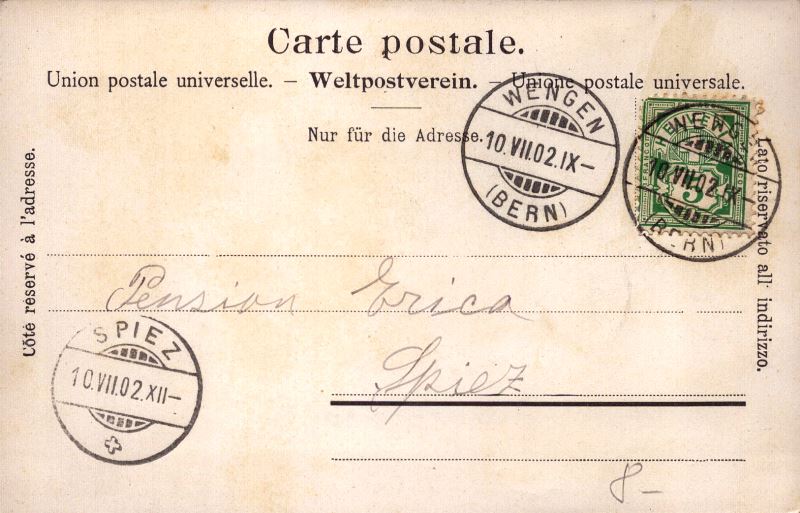 Carte postale.
Union postale universelle. – Weltpostverein. – Unione postale universale.
Nur für die Adresse.
Côté réservé à l'adresse.
Lato riservato all' indirizzo.
WENGEN
10.VII.02.IX–
(BERN)
WENGEN
10.VII.02.IX–
(BERN)
HELVETIA
5
Pension Erica
Spiez
SPIEZ
10.VII.02.XII–
8–